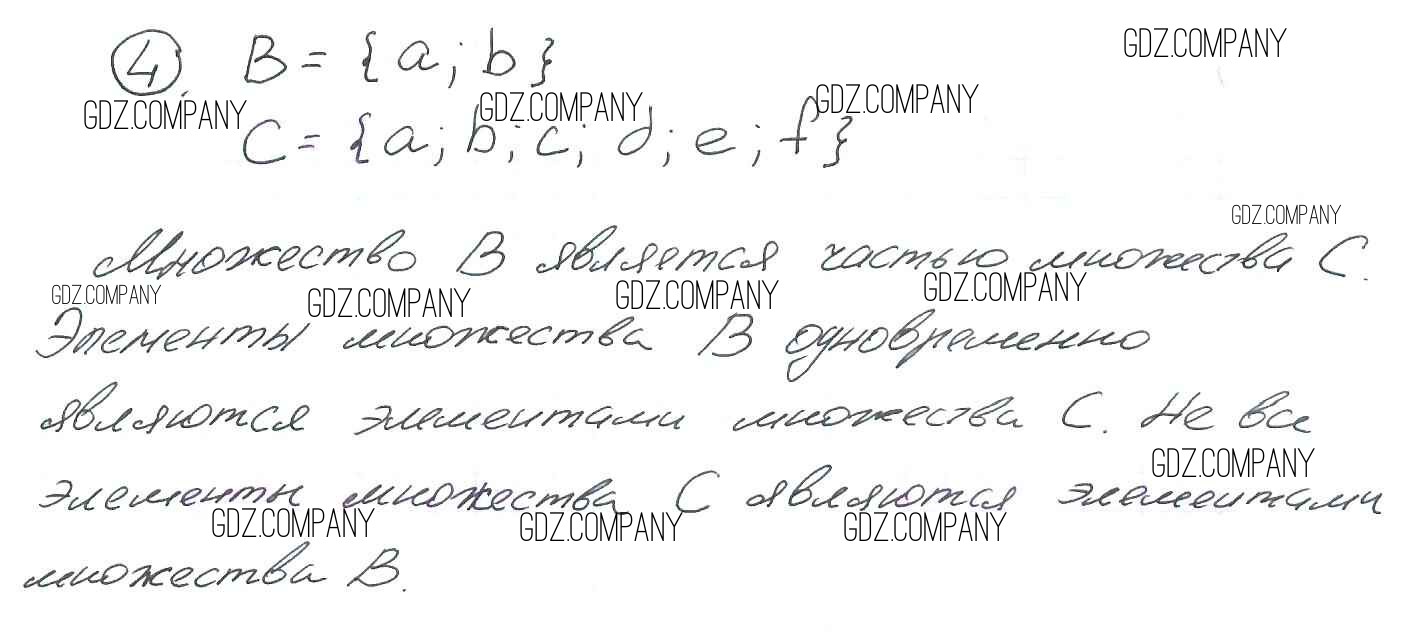 4. B = {a; b}
GDZ.COMPANY
GDZ.COMPANY GDZ.COMPANY GDZ.COMPANY
C = {a; b; c; d; e; f}
GDZ.COMPANY
Множество B является частью множества C.
GDZ.COMPANY GDZ.COMPANY GDZ.COMPANY GDZ.COMPANY
Элементы множества B одновременно
являются элементами множества C. Не все
GDZ.COMPANY
элементы множества C являются элементами
GDZ.COMPANY GDZ.COMPANY GDZ.COMPANY
множества B.